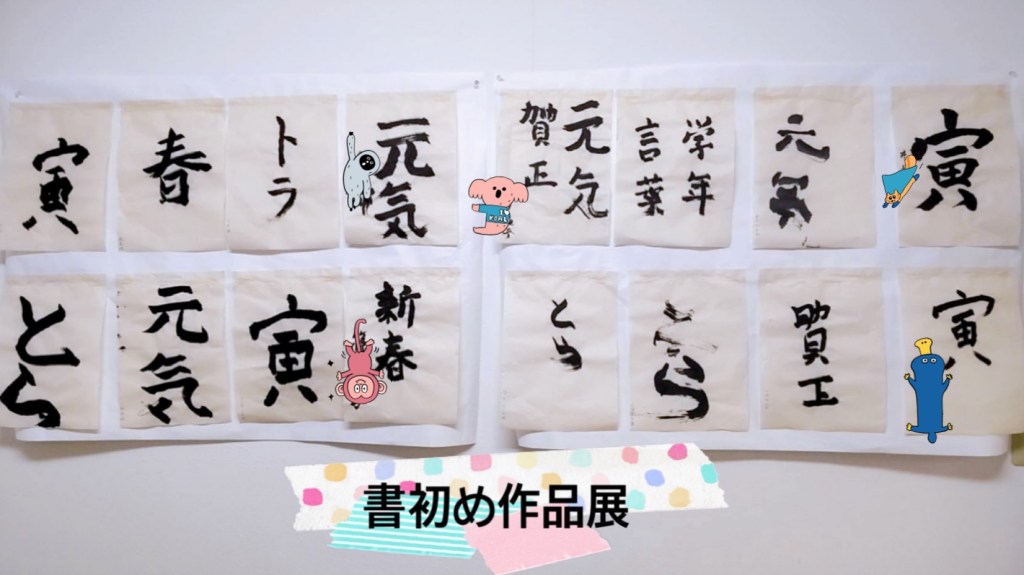 寅
春
トラ
元気
元気
賀正
学年
言葉
元気
寅
とら
元気
寅
新春
とら
とら
賀正
寅
書初め作品展